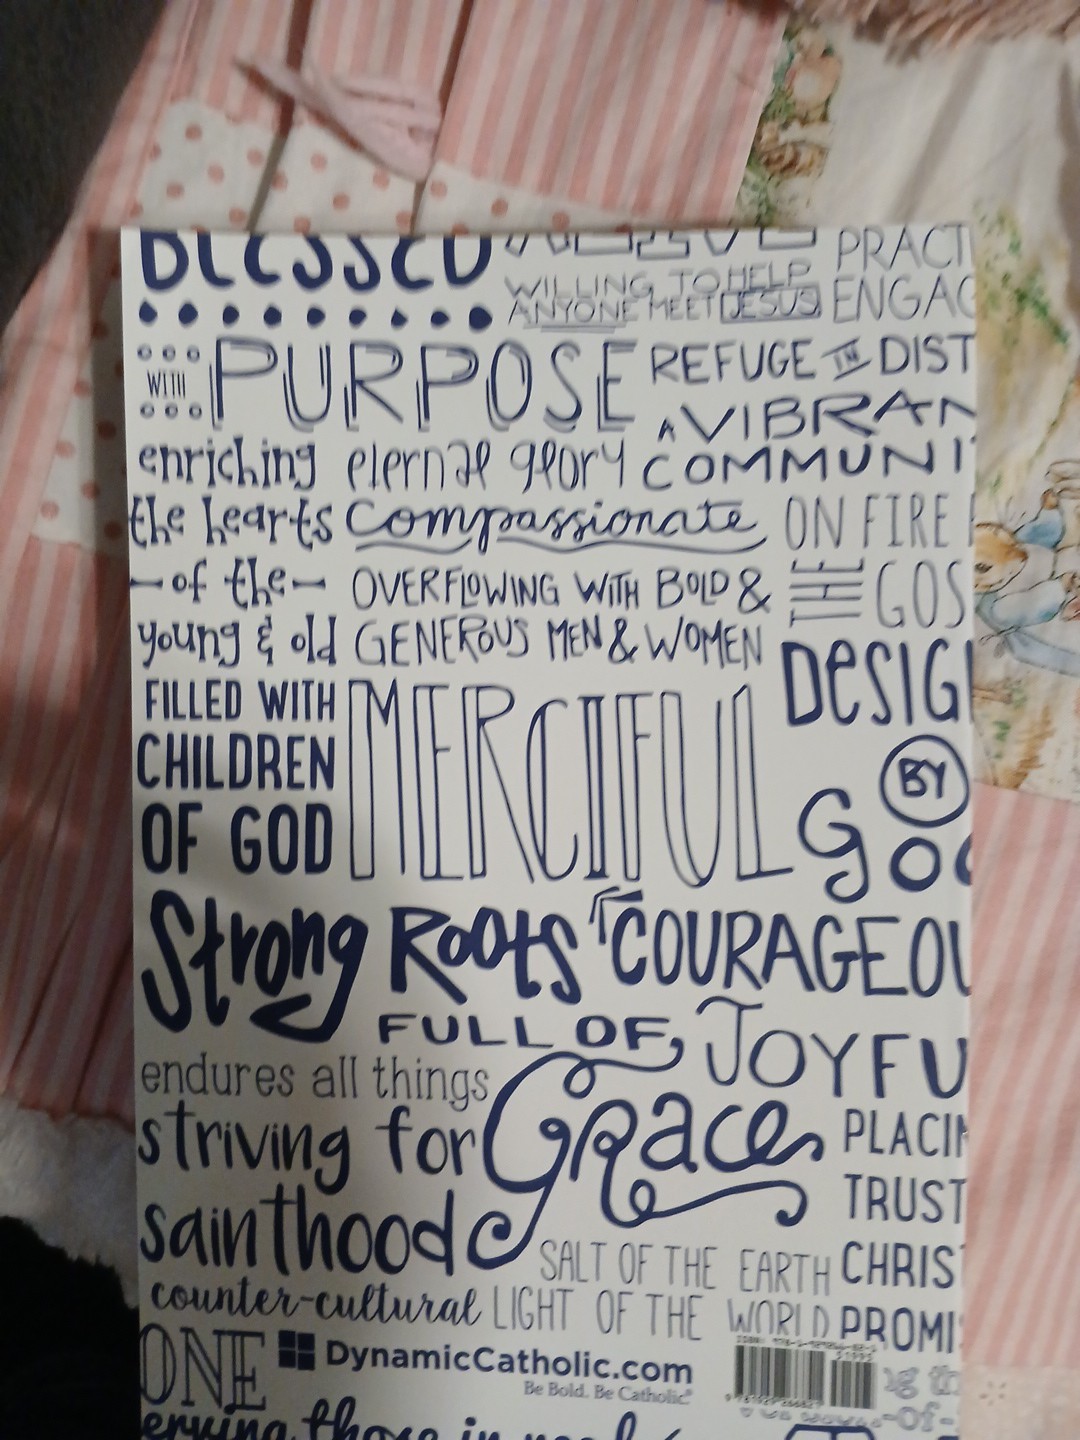 BLESSED
WILLING TO HELP
ANYONE MEET JESUS
PRACT
ENGAG
WITH PURPOSE
REFUGE IN DIST
A VIBRAN
COMMUNI
enriching
the hearts
of the
young & old
eternal glory
compassionate
ON FIRE
THE GOS
OVERFLOWING WITH BOLD &
GENEROUS MEN & WOMEN
DESIG
BY
GO
FILLED WITH
CHILDREN
OF GOD
MERCIFUL
Strong Roots
COURAGEOU
FULL OF
Grace
JOYFU
endures all things
striving for
sainthood
PLACIN
TRUST
CHRIST
PROMIS
SALT OF THE EARTH
LIGHT OF THE WORLD
counter-cultural
ONE
DynamicCatholic.com
Be Bold. Be Catholic.®
51995
erving those in need
-of-